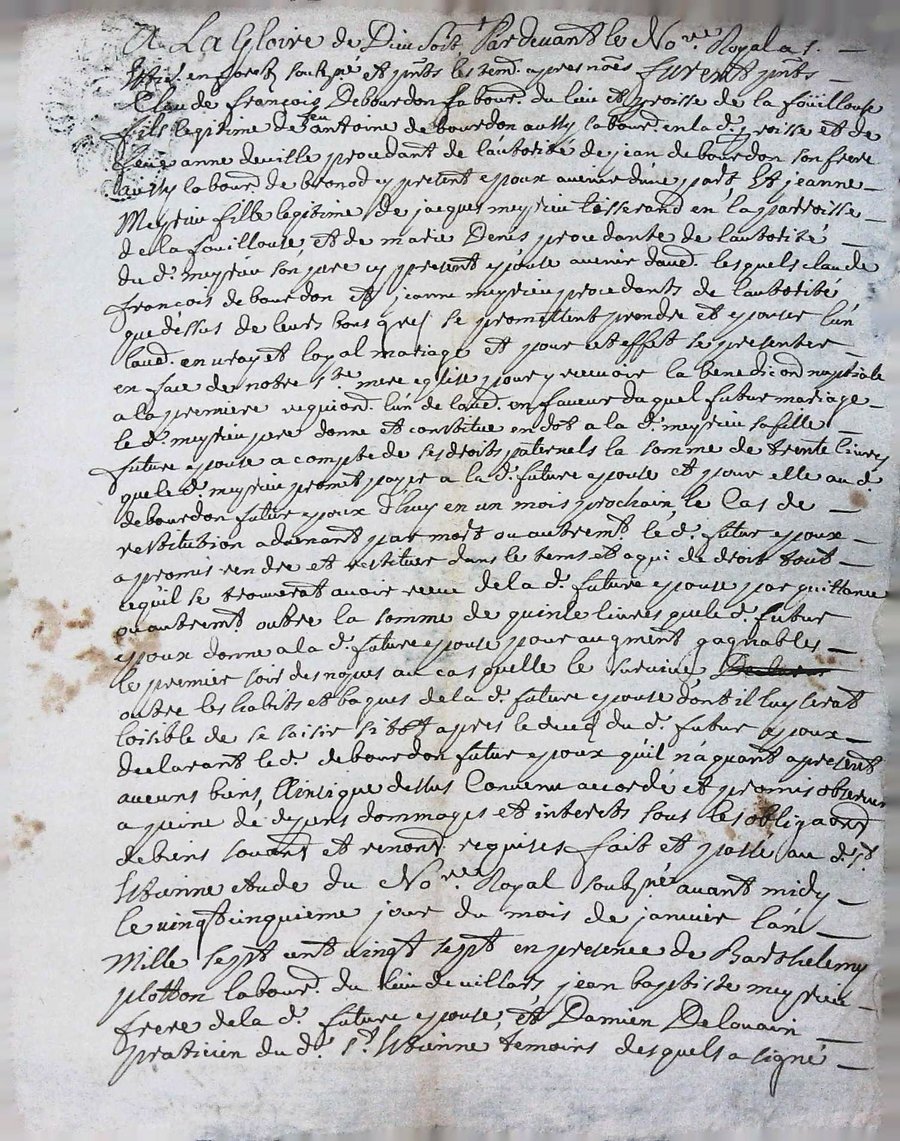 A La Gloire de Dieu Soit Pardevant le No.re Royal a s.
Etie. en forets soubsné et pnts les tem. apres nomes furent pnts
Claude françois Debourdon labour. du lieu et proisse de la foüillouse
fils legitime de feu antoine de bourdon aussy labour. en la d. proisse et de
feue anne deville procedant de lautorité de jean de bourdon son frere
aussy labour. de bronod cy present epoux avenir dune part, Et jeanne
Meyrieu fille legitime de jacques meyrieu tisserand en la parroisse
de la fouillouse, et de marie Denis procedante de lautorité
du d. meyrieu son pere cy present epouse avenir daud. lesquels claude
françois de bourdon et jeanne meyrieu procedants de lautorité
que déssus de leurs bons grés se promettent prendre et epouser lún
laud. en vray et loyal mariage et pour cet effet se presenter
en face de notre ste. mere eglise pour y recevoir la benedicon nuptiale
a la premiere requion. lún de laud. en faveur du quel futur mariage
le d. meyrieu pere donne et constitue en dot a la d. meyrieu sa fille
future epouse a compte de ses droits paternels la somme de trente livres
que le d. meyrieu promet payer a la d. future epouse et pour elle au d.
de bourdon futur epoux d'huy en un mois prochain, le Cas de
restitution advenant par mort ou autremt. le d. futur epoux
a promis rendre et restituer dans le tems et a qui de droit tout
ce quil se trouverat avoir receu de la d. future epouse par quittance
ou autremt. outre la somme de quinze livres que le d. futur
epoux donne a la d. future epouse pour augment gagnables
le premier soir des nopces au cas quelle le survive,
outre les habits et bagues de la d. future epouse dont il luy serat
loisible de se saisir sitott apres le deces du d. futur epoux
declarant le d. debourdon futur epoux quil n'a quant apresent
aucuns biens, Ainsi que dessus Convenu accordé et promis observer
a peine de depens dommages et interets sous les obligaons
de biens soumd. et renond. requises fait et passé au d. st.
Etienne etude du No.re Royal soubsné avant midy
le vingt cinquieme jour du mois de janvier lán
Mille sept cent vingt sept en presence de Barthelemy
plotton labour. du lieu de villars, jean baptiste meyrieu
frere de la d. future epouse, et Damien Delouain
praticien du d. st. Etienne temoins desquels a signé